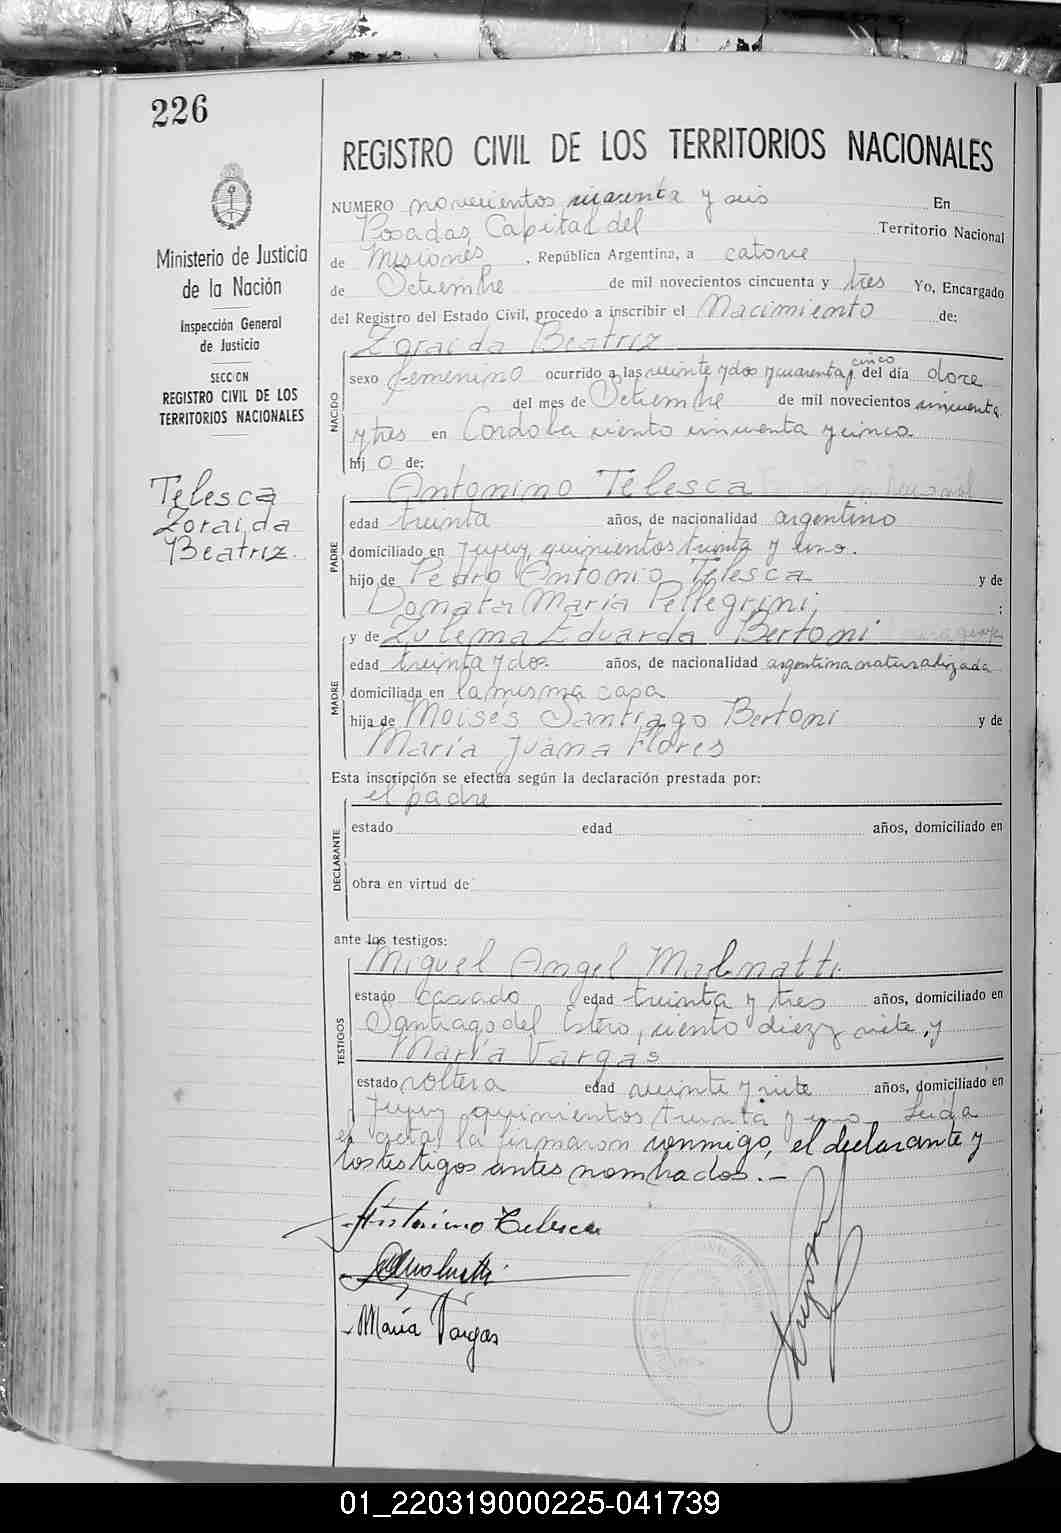 226
Ministerio de Justicia
de la Nación
Inspección General
de Justicia
SECCION
REGISTRO CIVIL DE LOS
TERRITORIOS NACIONALES
Telesca
Zoraida
Beatriz.
REGISTRO CIVIL DE LOS TERRITORIOS NACIONALES
NUMERO novecientos cuarenta y seis En
Posadas, Capital del Territorio Nacional
de Misiones, República Argentina, a catorce
de Setiembre de mil novecientos cincuenta y tres Yo, Encargado
del Registro del Estado Civil, procedo a inscribir el Nacimiento de:
NACIDO
Zoraida Beatriz
sexo femenino ocurrido a las veinte y dos y cuarenta y cinco del día doce
del mes de Setiembre de mil novecientos cincuenta
y tres en Cordoba ciento cincuenta y cinco.
hij o de:
PADRE
Antonino Telesca
edad treinta años, de nacionalidad argentino
domiciliado en Jujuy, quinientos treinta y uno.
hijo de Pedro Antonio Telesca y de
Donata María Pellegrini;
MADRE
y de Zulema Eduarda Bertoni
edad treinta y dos años, de nacionalidad argentina naturalizada
domiciliada en la misma casa
hija de Moisés Santiago Bertoni y de
María Juana Flores
Esta inscripción se efectúa según la declaración prestada por:
DECLARANTE
el padre
estado edad años, domiciliado en
obra en virtud de
ante los testigos:
TESTIGOS
Miguel Angel Malnatti
estado casado edad treinta y tres años, domiciliado en
Santiago del Estero, ciento diez y siete, y
María Vargas
estado soltera edad veinte y siete años, domiciliado en
Jujuy quinientos treinta y uno Leida
el acta, la firmaron conmigo, el declarante y
los testigos antes nombrados.—
Antonino Telesca
María Vargas
01_220319000225-041739